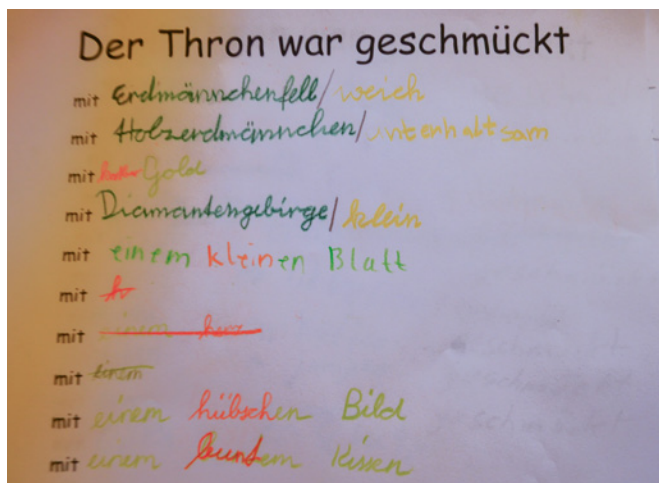 Der Thron war geschmückt
mit Erdmännchenfell/weich
mit Holzerdmännchen/unterhaltsam
mit Gold
mit Diamantengebirge/klein
mit einem kleinen Blatt
mit
mit einem
mit einem
mit einem hübschen Bild
mit einem buntem Kissen